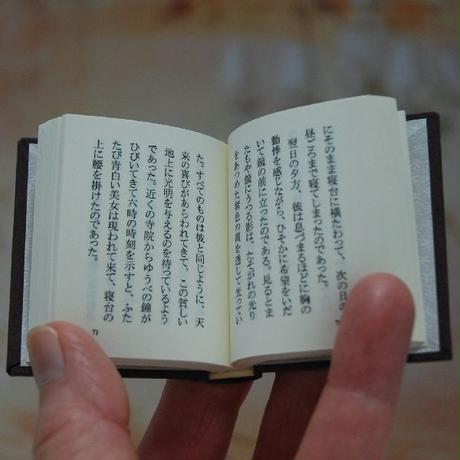 にそのまま寝台に横たわって、次の日の
昼ごろまで寝てしまったのであった。
翌日の夕方、彼は息づまるほどに胸の
動悸を感じながら、ひそかに希望をいだ
いて鏡の前に立ったのである。見るとま
たもや鏡にうつる影は、たそがれの光り
をあつめた紫色の靄を透して、光ってい
た。すべてのものは彼と同じように、天
来の喜びがあらわれてきて、この貧しい
地上に光明を与えるのを待っているよう
であった。近くの寺院からゆうべの鐘が
ひびいてきて六時の時刻を示すと、ふた
たび青白い美女は現われて来て、寝台の
上に腰を掛けたのであった。
71